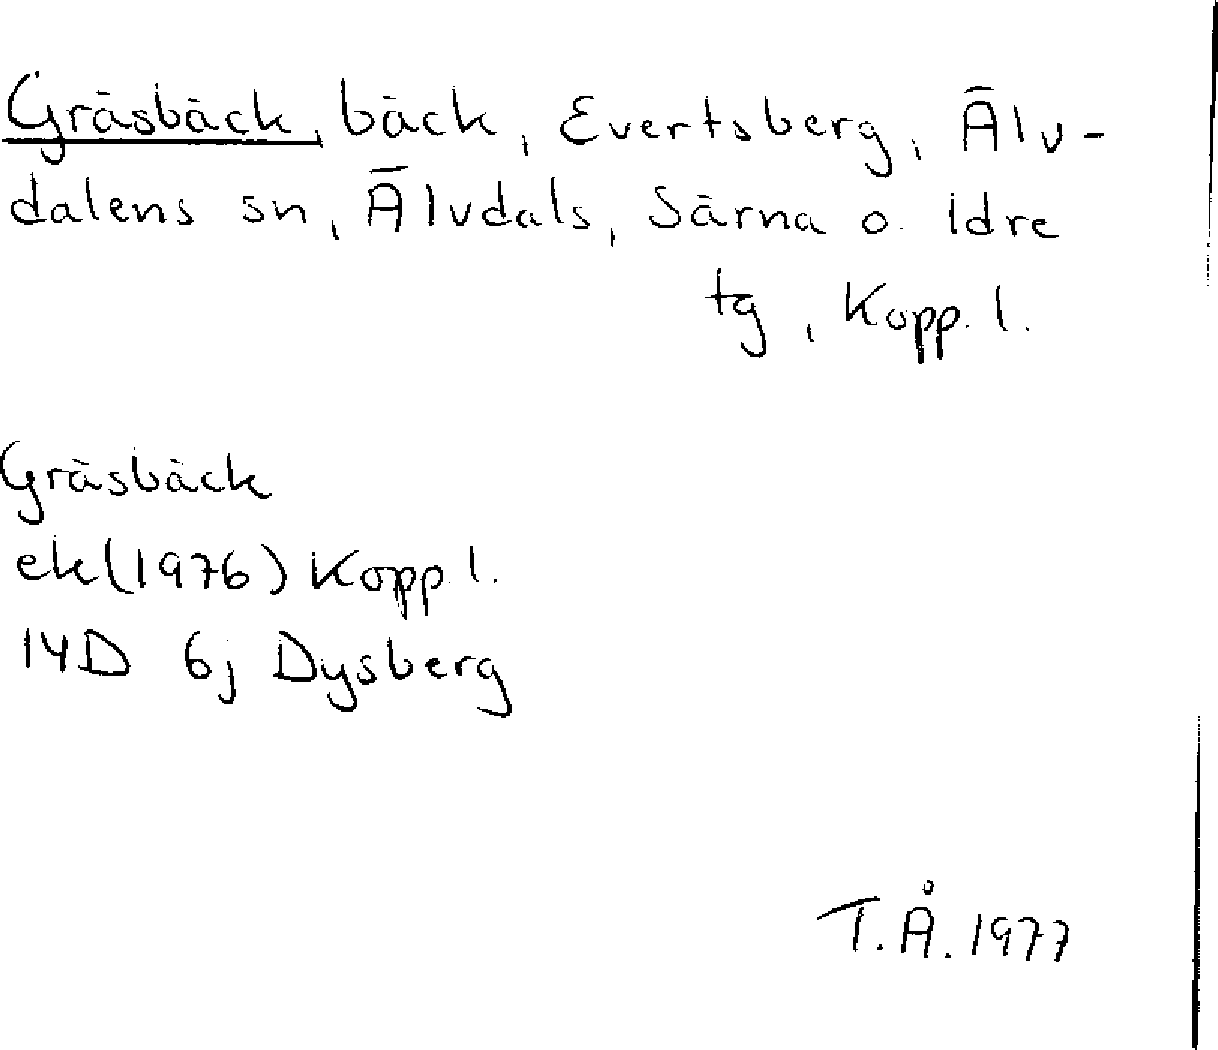 Gräsbäck, bäck, Evertsberg, Älv-
dalens sn, Älvdals, Särna o. Idre
tg, Kopp. l.
Gräsbäck
ek(1976) Kopp l.
14D 6j Dysberg
T.Å. 1977